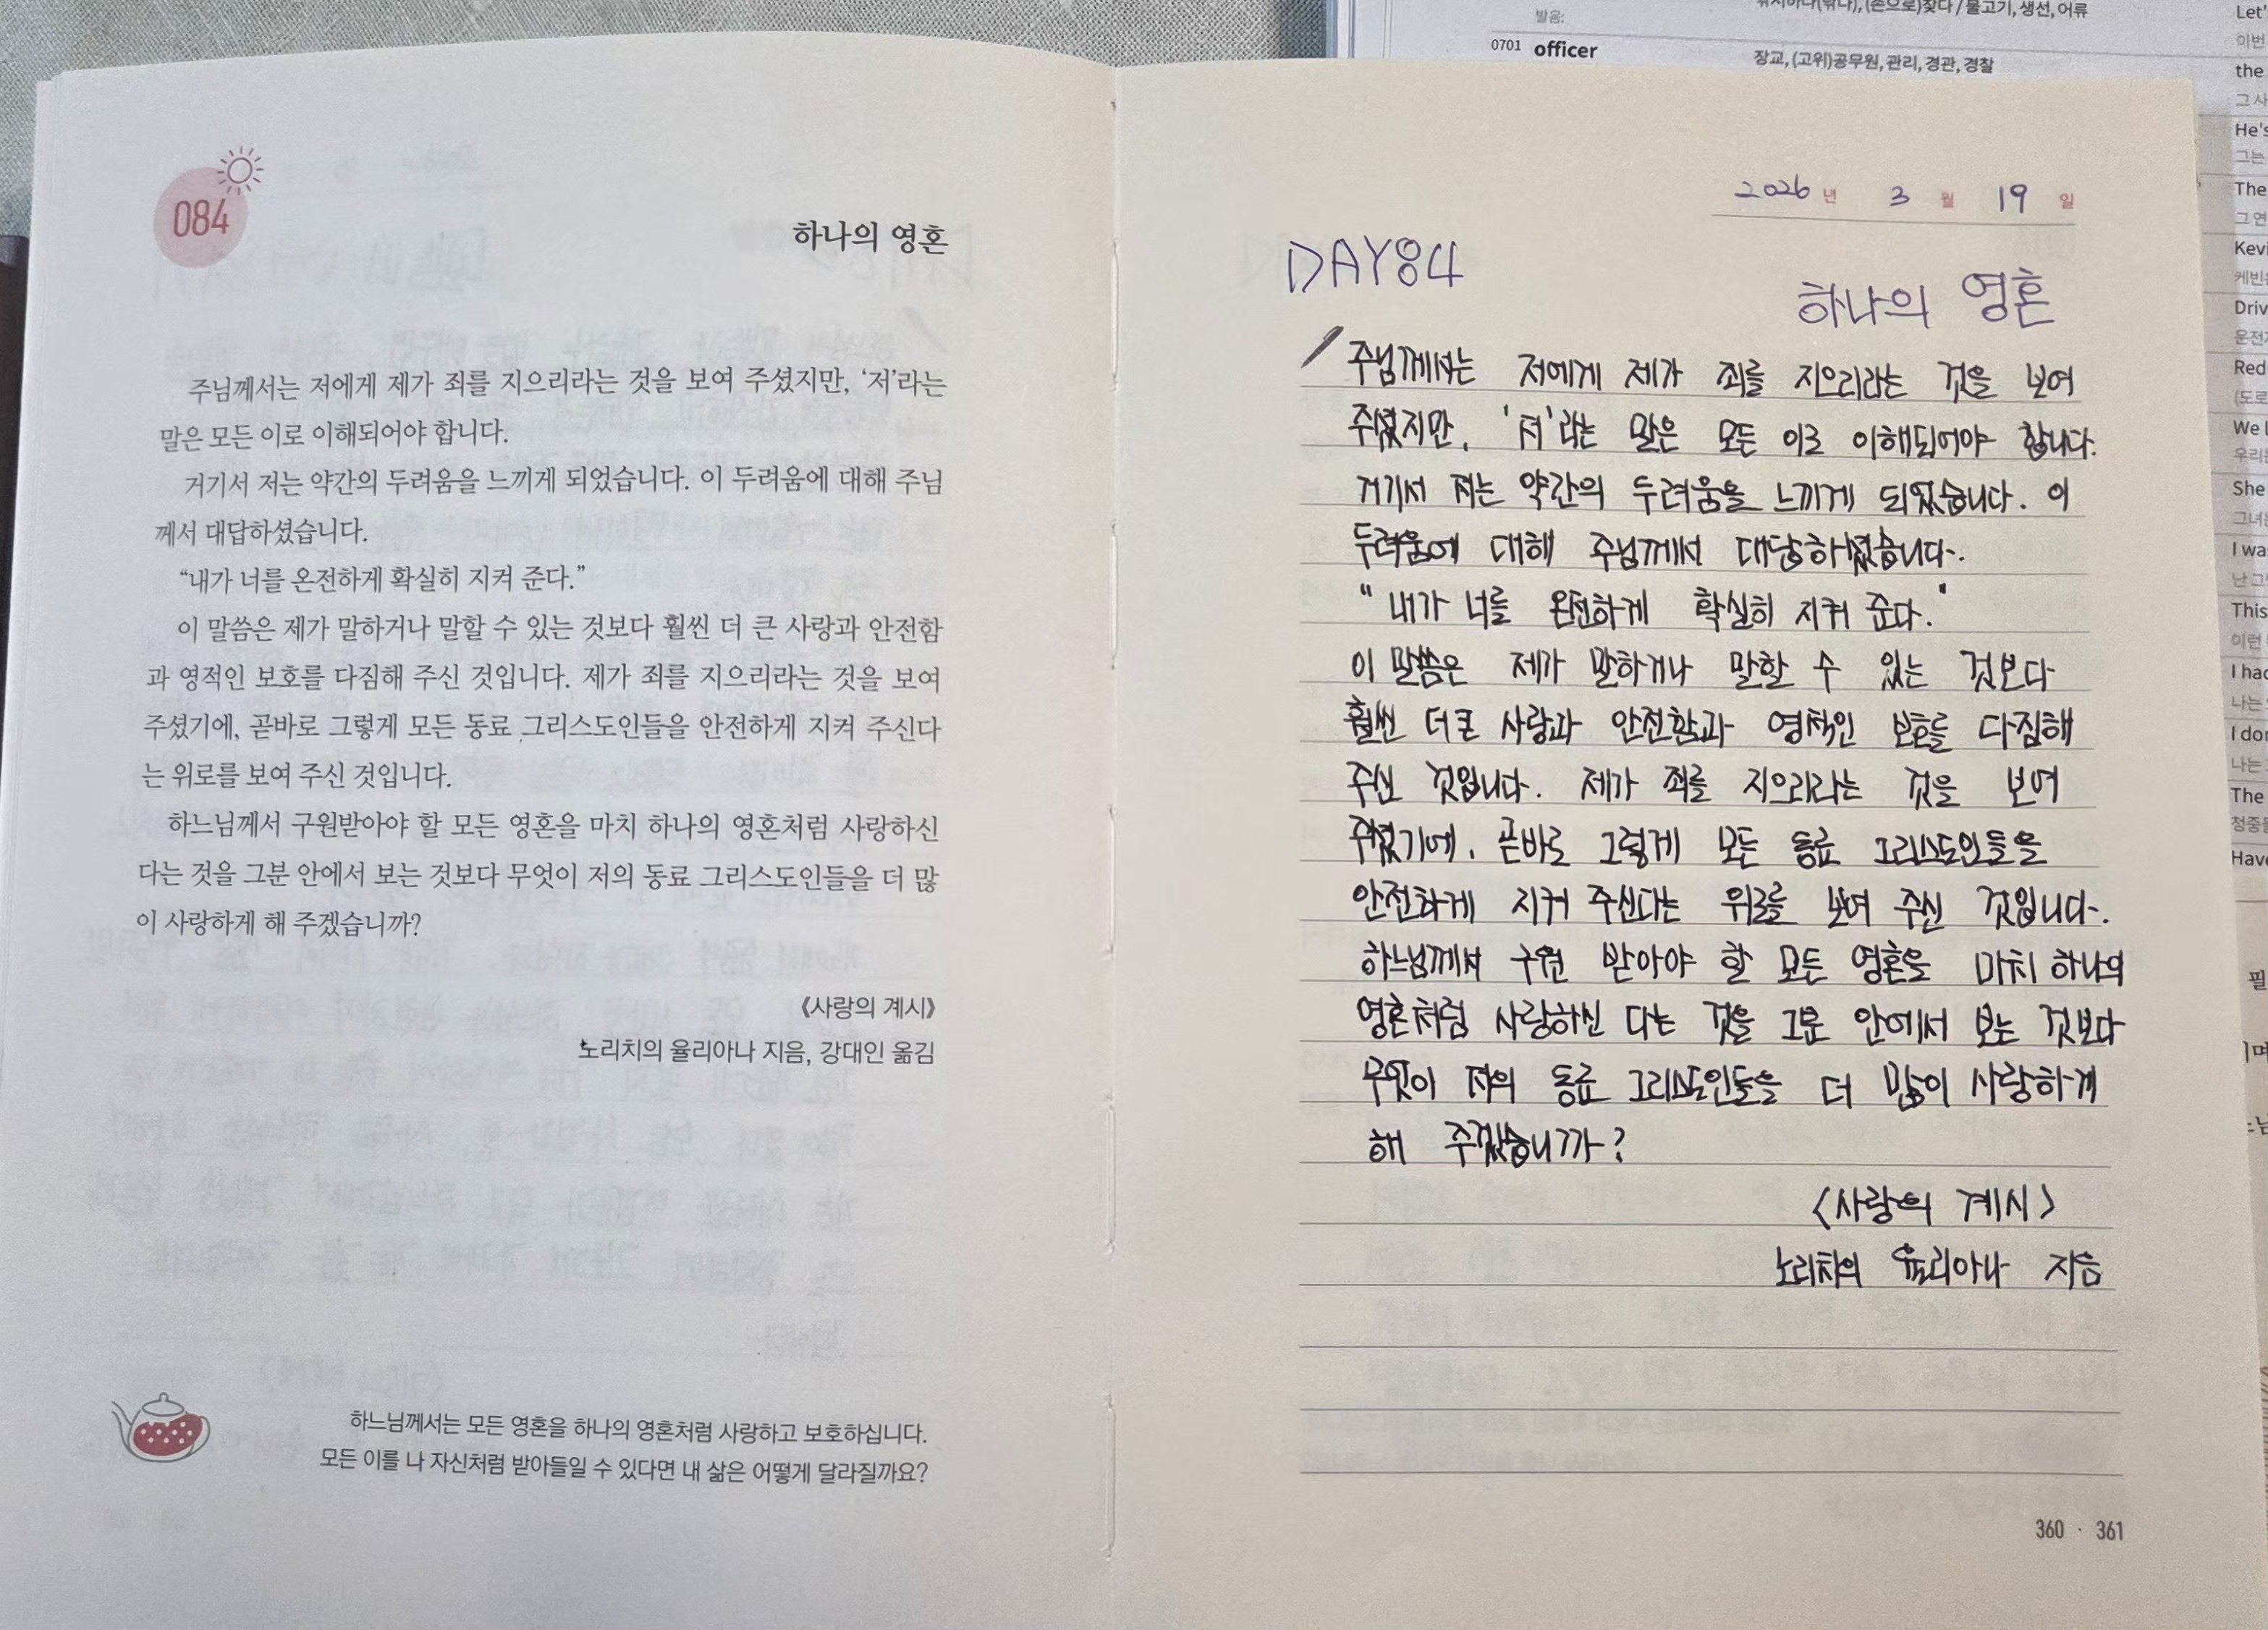 084
하나의 영혼
주님께서는 저에게 제가 죄를 지으리라는 것을 보여 주셨지만, ‘저’라는
말은 모든 이로 이해되어야 합니다.
거기서 저는 약간의 두려움을 느끼게 되었습니다. 이 두려움에 대해 주님
께서 대답하셨습니다.
“내가 너를 온전하게 확실히 지켜 준다.”
이 말씀은 제가 말하거나 말할 수 있는 것보다 훨씬 더 큰 사랑과 안전함
과 영적인 보호를 다짐해 주신 것입니다. 제가 죄를 지으리라는 것을 보여
주셨기에, 곧바로 그렇게 모든 동료 그리스도인들을 안전하게 지켜 주신다
는 위로를 보여 주신 것입니다.
하느님께서 구원받아야 할 모든 영혼을 마치 하나의 영혼처럼 사랑하신
다는 것을 그분 안에서 보는 것보다 무엇이 저의 동료 그리스도인들을 더 많
이 사랑하게 해 주겠습니까?
《사랑의 계시》
노리치의 율리아나 지음, 강대인 옮김
하느님께서는 모든 영혼을 하나의 영혼처럼 사랑하고 보호하십니다.
모든 이를 나 자신처럼 받아들일 수 있다면 내 삶은 어떻게 달라질까요?
2026년 3월 19일
DAY84
하나의 영혼
주님께서는 저에게 제가 죄를 지으리라는 것을 보여
주셨지만, '저'라는 말은 모든 이로 이해되어야 합니다.
거기서 저는 약간의 두려움을 느끼게 되었습니다. 이
두려움에 대해 주님께서 대답하셨습니다.
"내가 너를 온전하게 확실히 지켜 준다."
이 말씀은 제가 말하거나 말할 수 있는 것보다
훨씬 더 큰 사랑과 안전함과 영적인 보호를 다짐해
주신 것입니다. 제가 죄를 지으리라는 것을 보여
주셨기에, 곧바로 그렇게 모든 동료 그리스도인들을
안전하게 지켜 주신다는 위로를 보여 주신 것입니다.
하느님께서 구원 받아야 할 모든 영혼을 마치 하나의
영혼처럼 사랑하신 다는 것을 그분 안에서 보는 것보다
무엇이 저의 동료 그리스도인들을 더 많이 사랑하게
해 주겠습니까?
<사랑의 계시>
노리치의 율리아나 지음
360 · 361
발음:
0701 officer
장교, (고위)공무원, 관리, 경관, 경찰
Let'
이번
the
그 사
He's
그는
The
그 연
Kevi
케빈은
Driv
운전
Red
(도로
We l
우리는
She
그녀는
I wa
난 그
This
이런
I had
나는
I dor
나는
The
청중들
Have